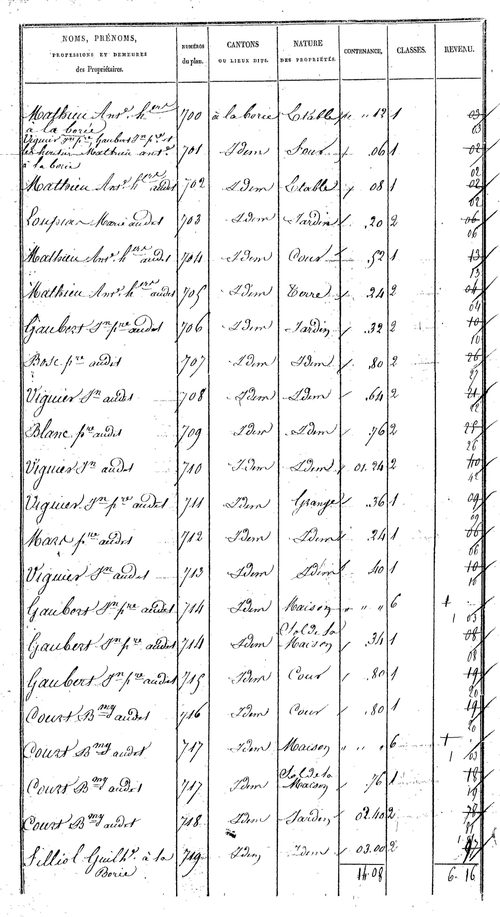 NOMS, PRÉNOMS,
PROFESSIONS ET DEMEURES
des Propriétaires.
NUMÉROS
du plan.
CANTONS
OU LIEUX DITS.
NATURE
DES PROPRIÉTÉS.
CONTENANCE.
CLASSES.
REVENU.
Mathieu Ant.e h.ers 700 à la borie Etable " " 12 1 03
à la borie 03
Viguier Jn pre, Gaubert Jn pre et
Mathieu ant.e 701 Idem Four .06 1 02
à la borie 02
Mathieu Ant.e h.ers audit 702 Idem Etable 08 1 02
02
Loupiac Marie audit 703 Idem Jardin .20 2 06
06
Mathieu Ant.e h.ers audit 704 Idem Cour .52 1 13
13
Mathieu Ant.e h.ers audit 705 Idem Terre .24 2 04
04
Gaubert Jn pre audit 706 Idem Jardin .32 2 10
10
Bosc pre audit 707 Idem Idem .80 2 26
27
Viguier Jn audit 708 Idem Idem .64 2 21
Blanc pre audit 709 Idem Idem .76 2
26
Viguier Jn audit 710 Idem Idem 01.24 2 40
42
Viguier Jn pre audit 711 Idem Grange .36 1 09
09
Marc pre audit 712 Idem Idem .24 1 06
06
Viguier Jn audit 713 Idem Idem .40 1 10
10
Gaubert Jn pre audit 714 Idem Maison " " " 6
1 03
Gaubert Jn pre audit 714 Idem Sol de la Maison .34 1 08
08
Gaubert Jn pre audit 715 Idem Cour .80 1 19
20
Court Bmy audit 716 Idem Cour .80 1 19
20
Court Bmy audit 717 Idem Maison " " " 6
1 03
Court Bmy audit 717 Idem Sol de la Maison .76 1 18
19
Court Bmy audit 718 Idem Jardin 02.40 2 78
Filliol Guilh.e à la 719 Idem Idem 03.00 2 97
Borie 16.08 6.16